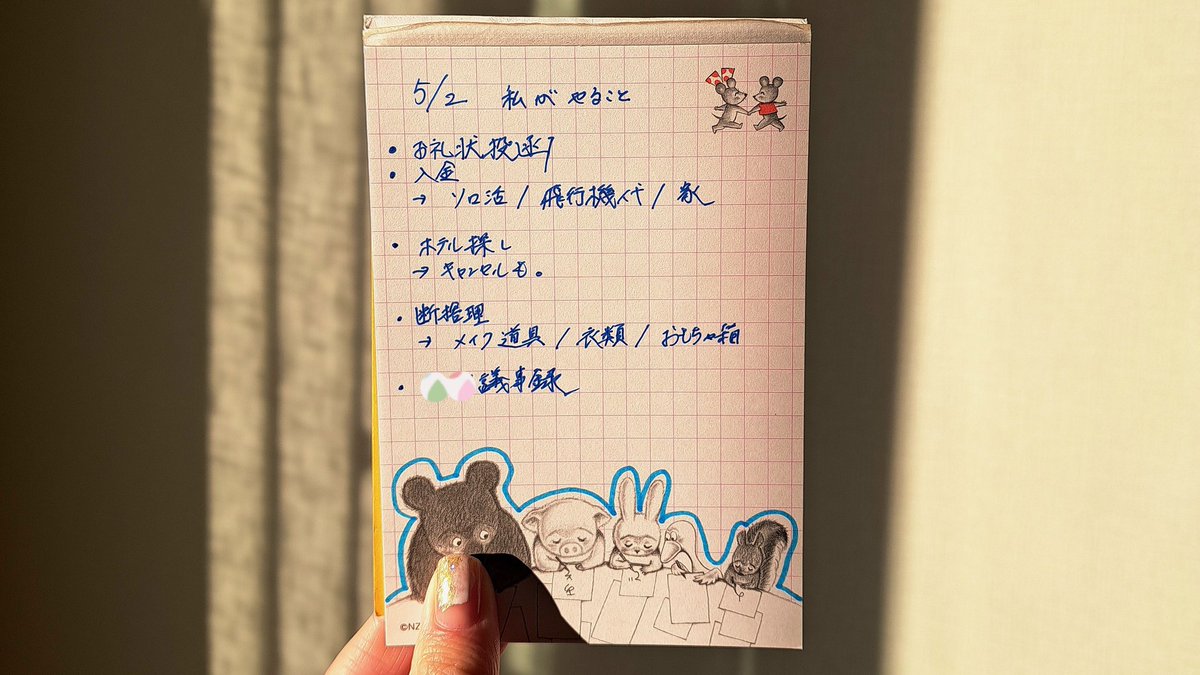 5/2 私がやること
・お礼状投函
・入金
→ ソロ活 / 飛行機代 / 家
・ホテル探し
→ キャンセルも。
・断捨理
→ メイク道具 / 衣類 / おもちゃ箱
・議事録
©NZ